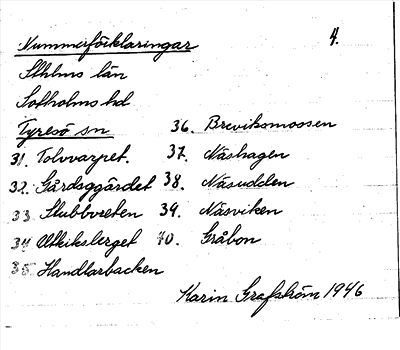 Nummerförklaringar 4.
Sthlms län
Sotholms hd
Tyresö sn
31. Tolvvarpet.
32. Gårdsggärdet
33 Stubbvreten
34 Utkiksberget
35. Handlarbacken
36. Breviksmossen
37. Näshagen
38. Näsudden
39. Näsviken
40. Gråbon
Karin Grafström 1946